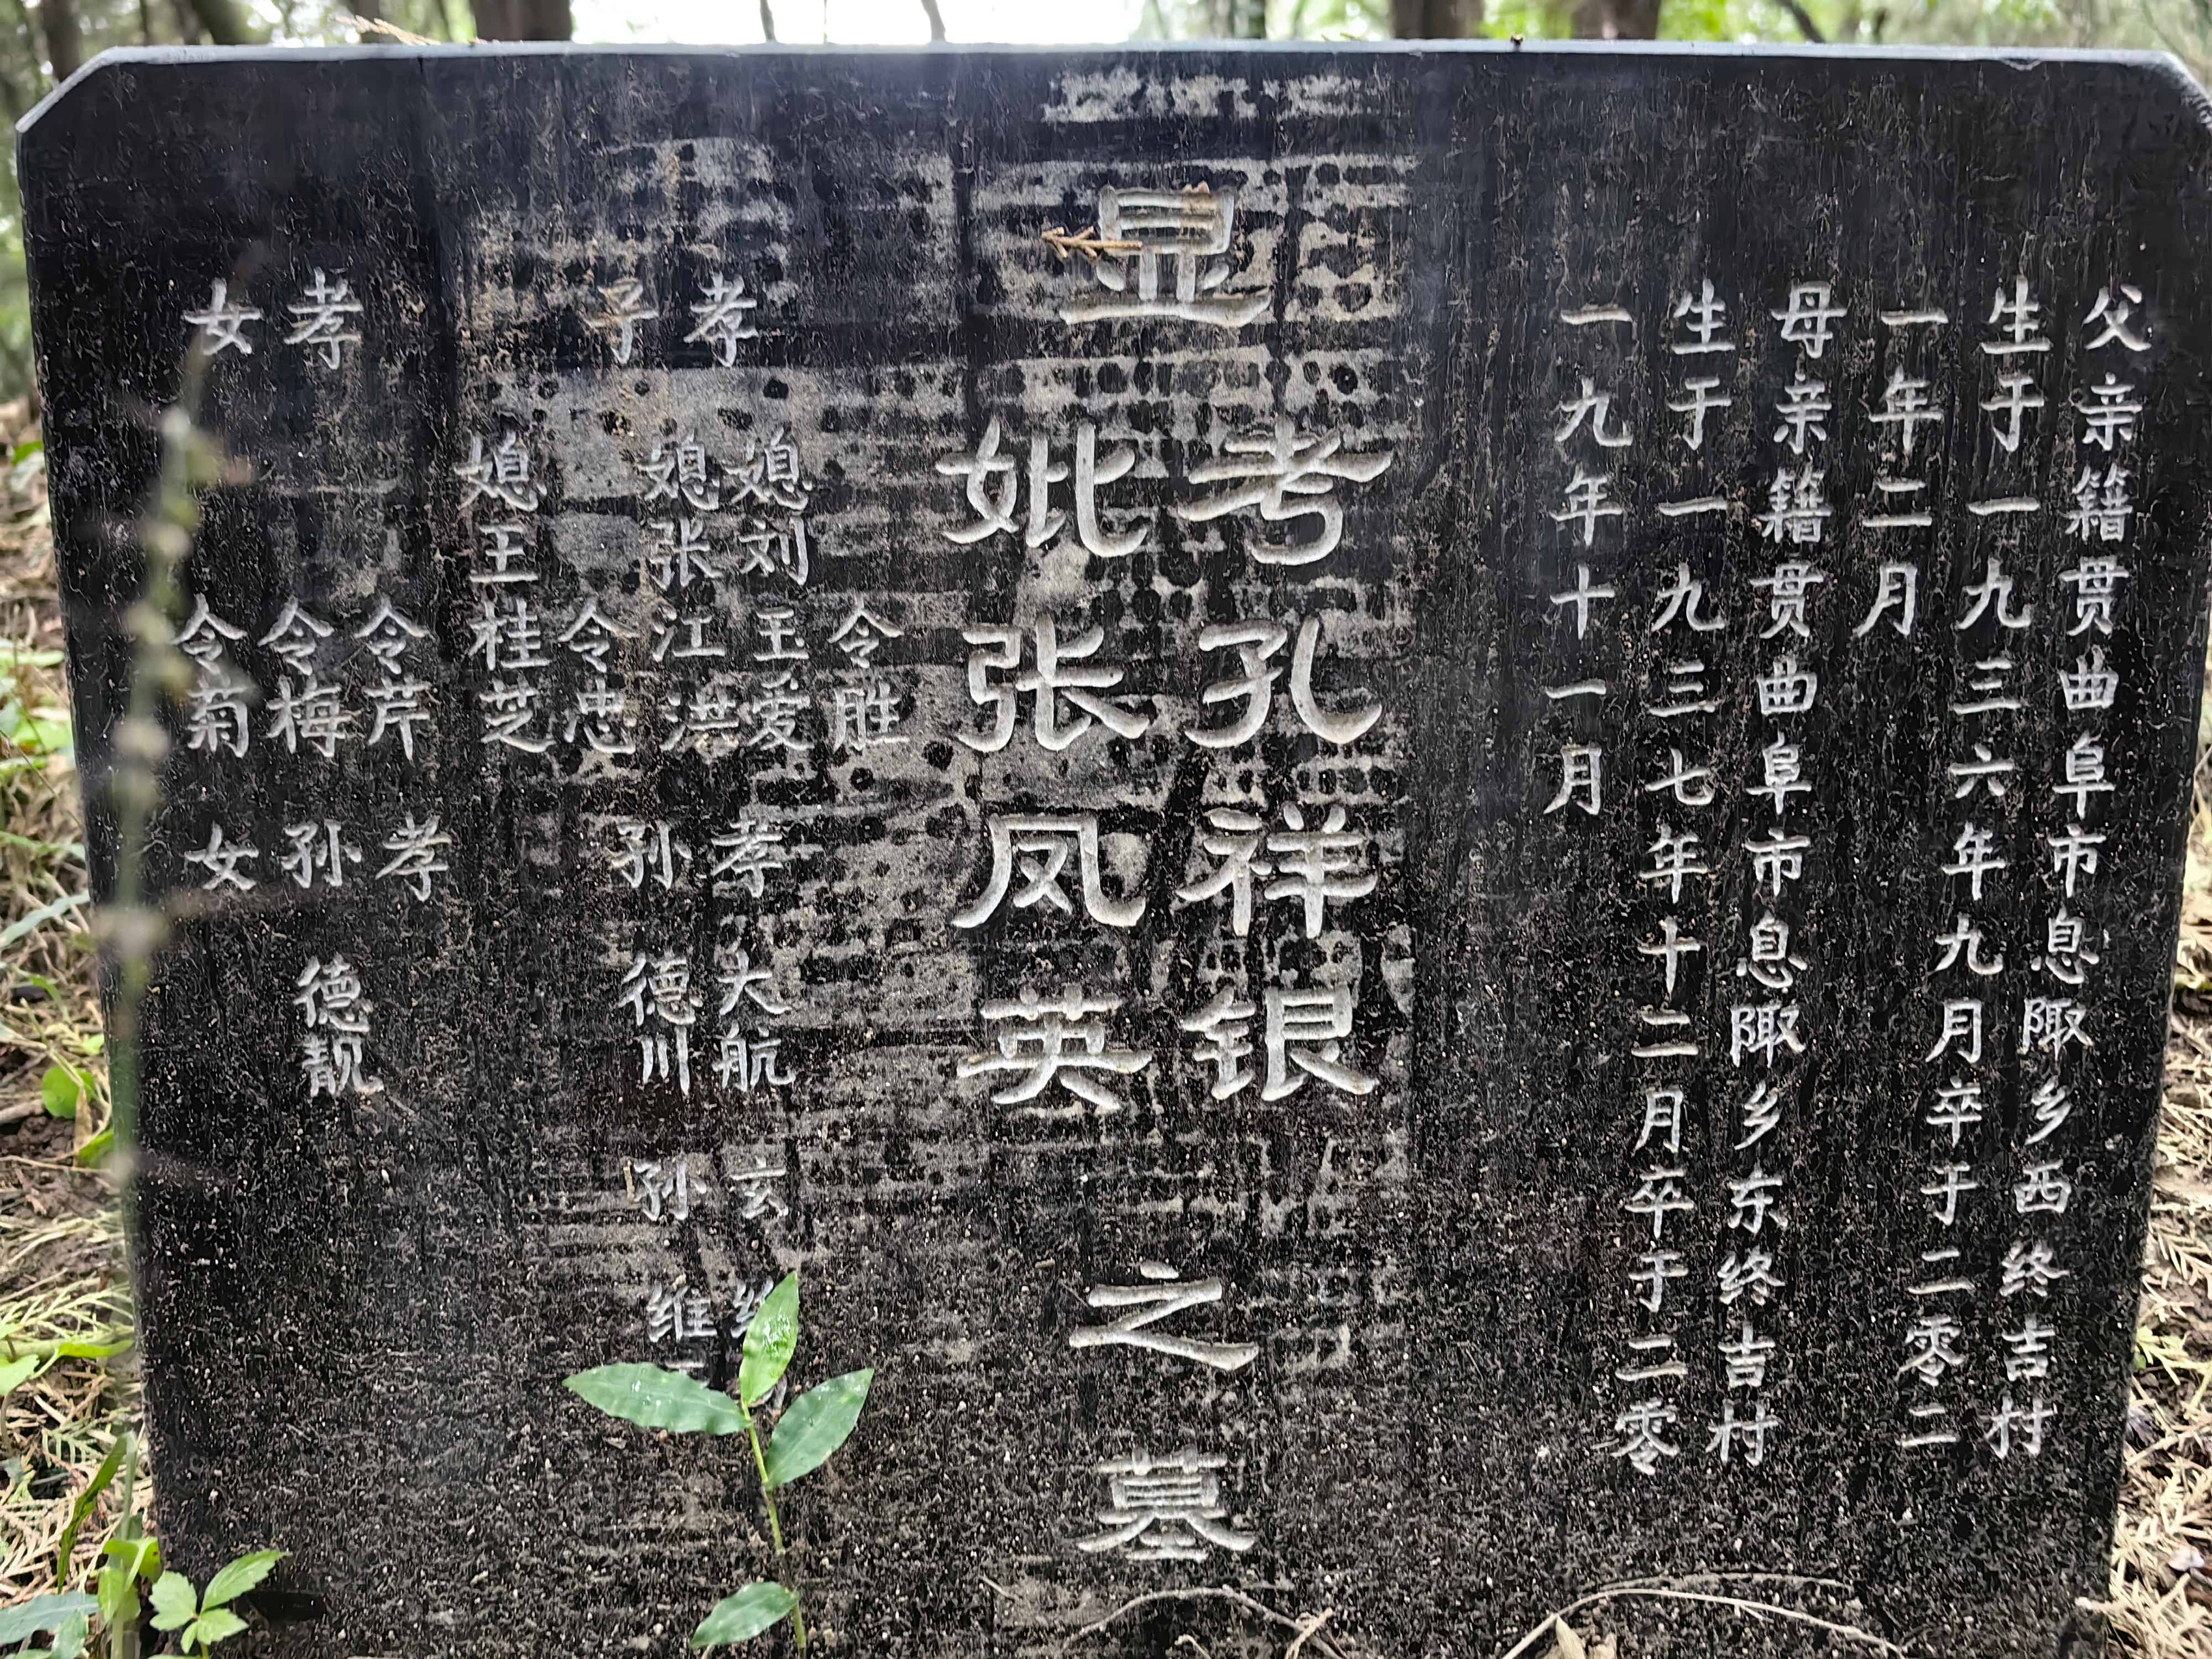 父亲籍贯曲阜市息陬乡西终吉村
生于一九三六年九月卒于二零二
一年二月
母亲籍贯曲阜市息陬乡东终吉村
生于一九三七年十二月卒于二零
一九年十一月
显
考孔祥银
妣张凤英
之墓
孝子
令胜
媳刘玉爱
媳张江洪
令忠
媳王桂芝
孝孙
大航
德川
玄孙
维
孝女
令芹
令梅
令菊
孝孙女
德靓